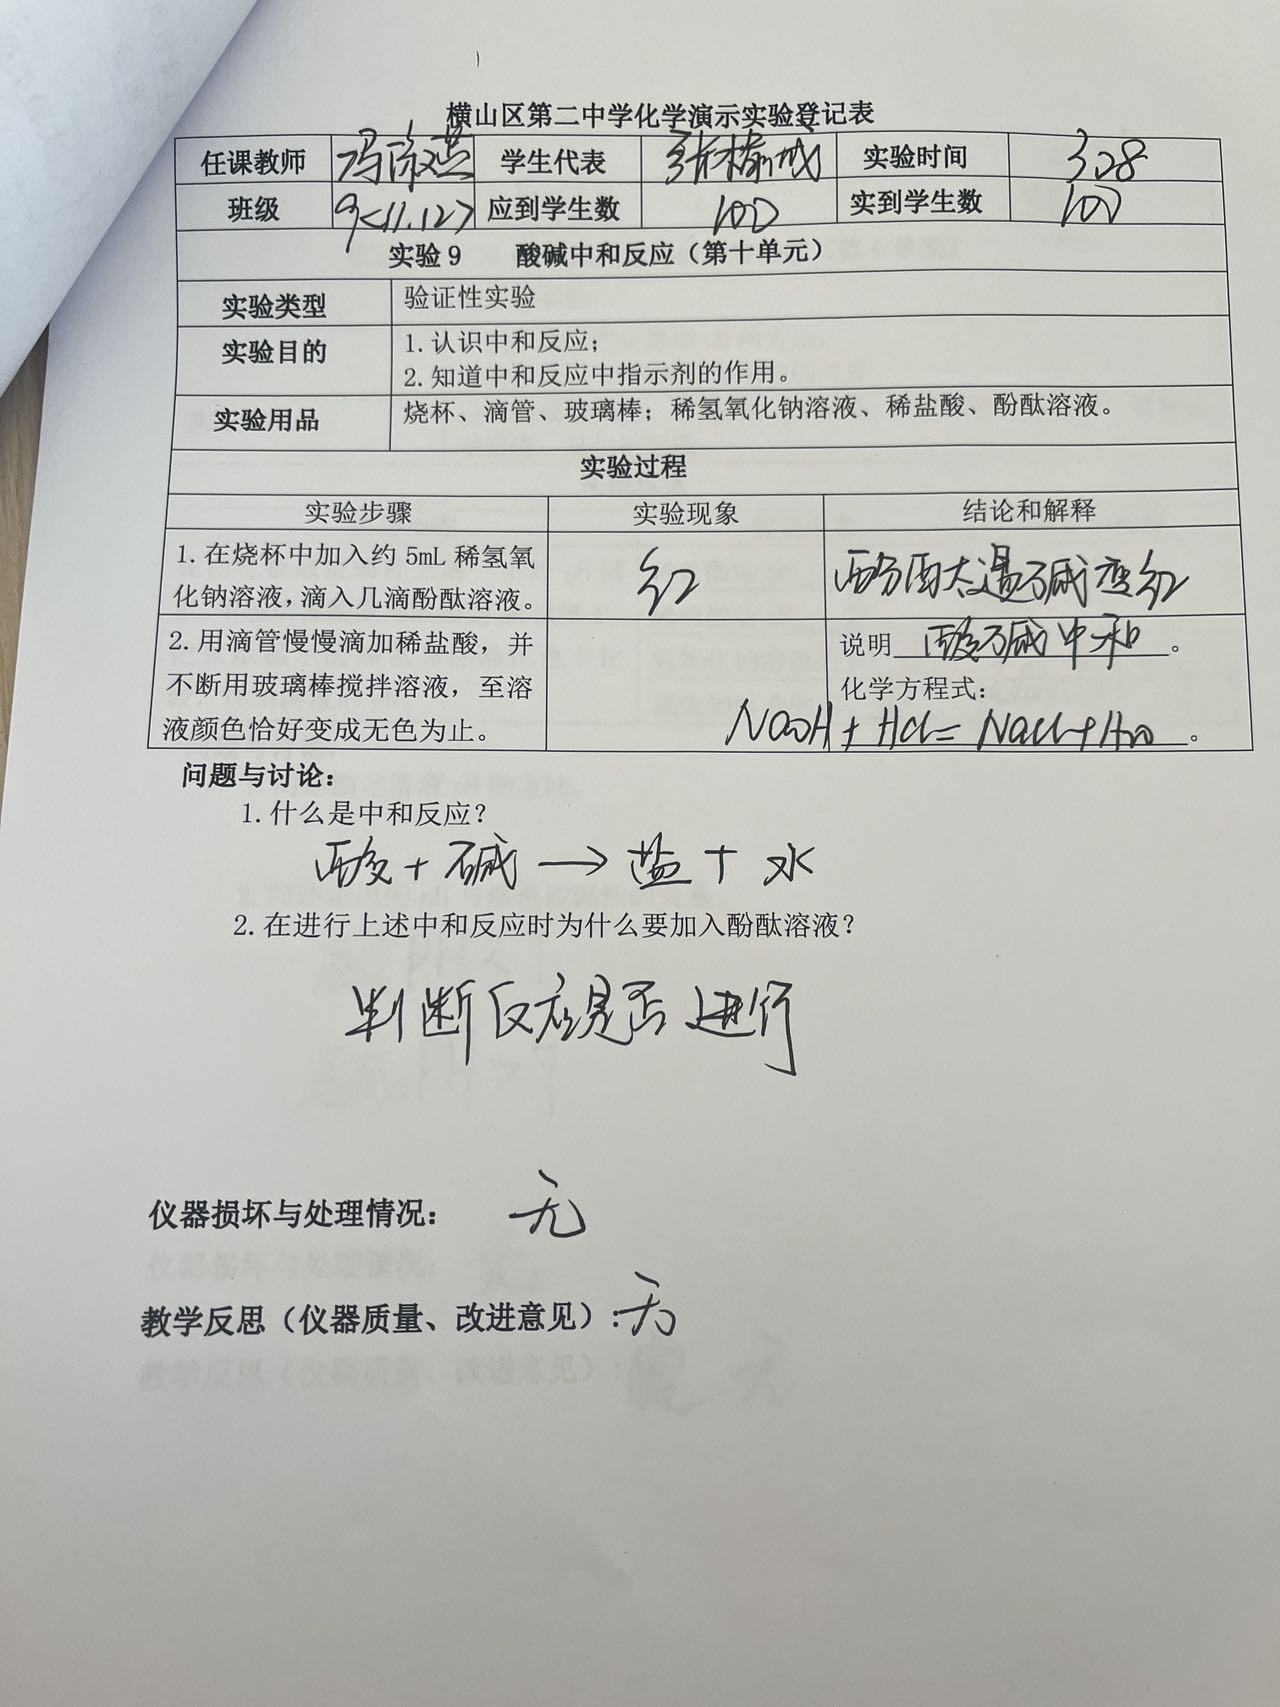 横山区第二中学化学演示实验登记表
任课教师 冯啟燕 学生代表 张榆城 实验时间 3.28
班级 9<11.12> 应到学生数 100 实到学生数 100
实验9 酸碱中和反应（第十单元）
实验类型 验证性实验
实验目的 1.认识中和反应；
2.知道中和反应中指示剂的作用。
实验用品 烧杯、滴管、玻璃棒；稀氢氧化钠溶液、稀盐酸、酚酞溶液。
实验过程
实验步骤 实验现象 结论和解释
1.在烧杯中加入约 5mL 稀氢氧
化钠溶液，滴入几滴酚酞溶液。
红
酚酞遇碱变红
2.用滴管慢慢滴加稀盐酸，并
不断用玻璃棒搅拌溶液，至溶
液颜色恰好变成无色为止。
说明 酸碱中和 。
化学方程式：
NaOH + HCl = NaCl + H₂O 。
问题与讨论：
1.什么是中和反应？
酸 + 碱 → 盐 + 水
2.在进行上述中和反应时为什么要加入酚酞溶液？
判断反应是否进行
仪器损坏与处理情况： 无
教学反思（仪器质量、改进意见）: 无